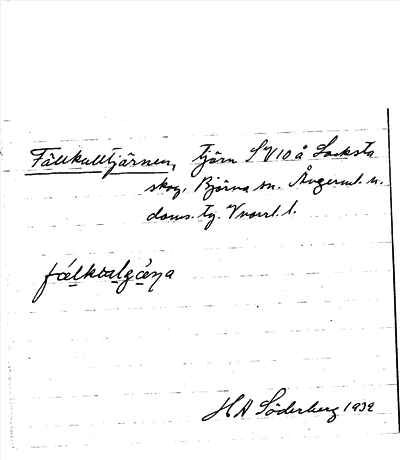 Fällkulltjärnen, tjärn SV10 å Locksta
skog, Björna sn. Ångerml. n.
doms. tg. Vnorrl. l.
HA Söderberg 1932